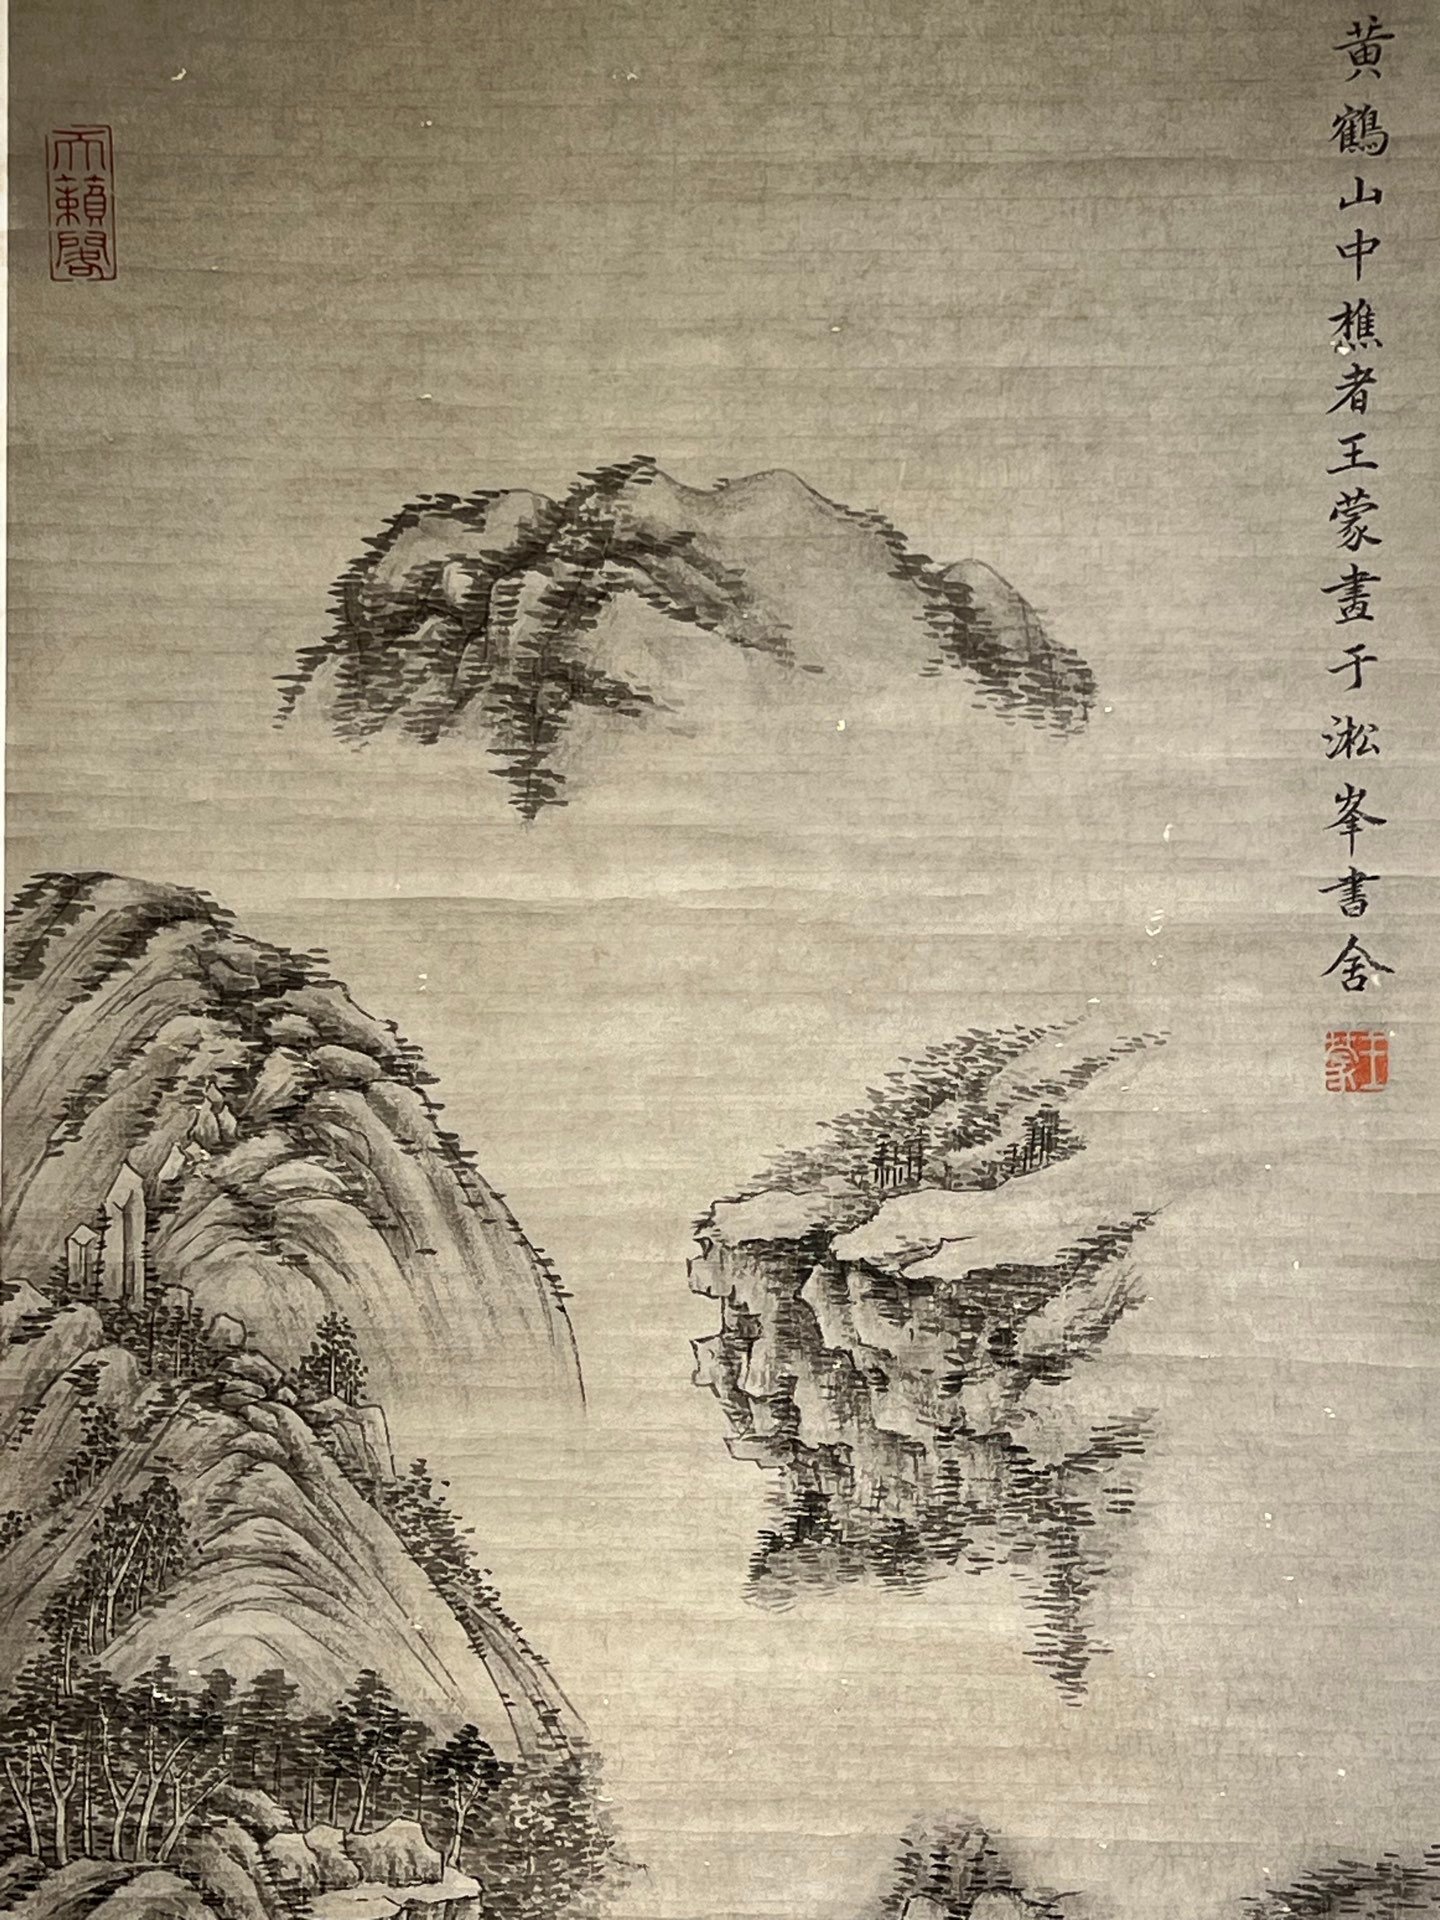 黄鶴山中樵者王蒙畫于淞峯書舍
王蒙
天籟閣